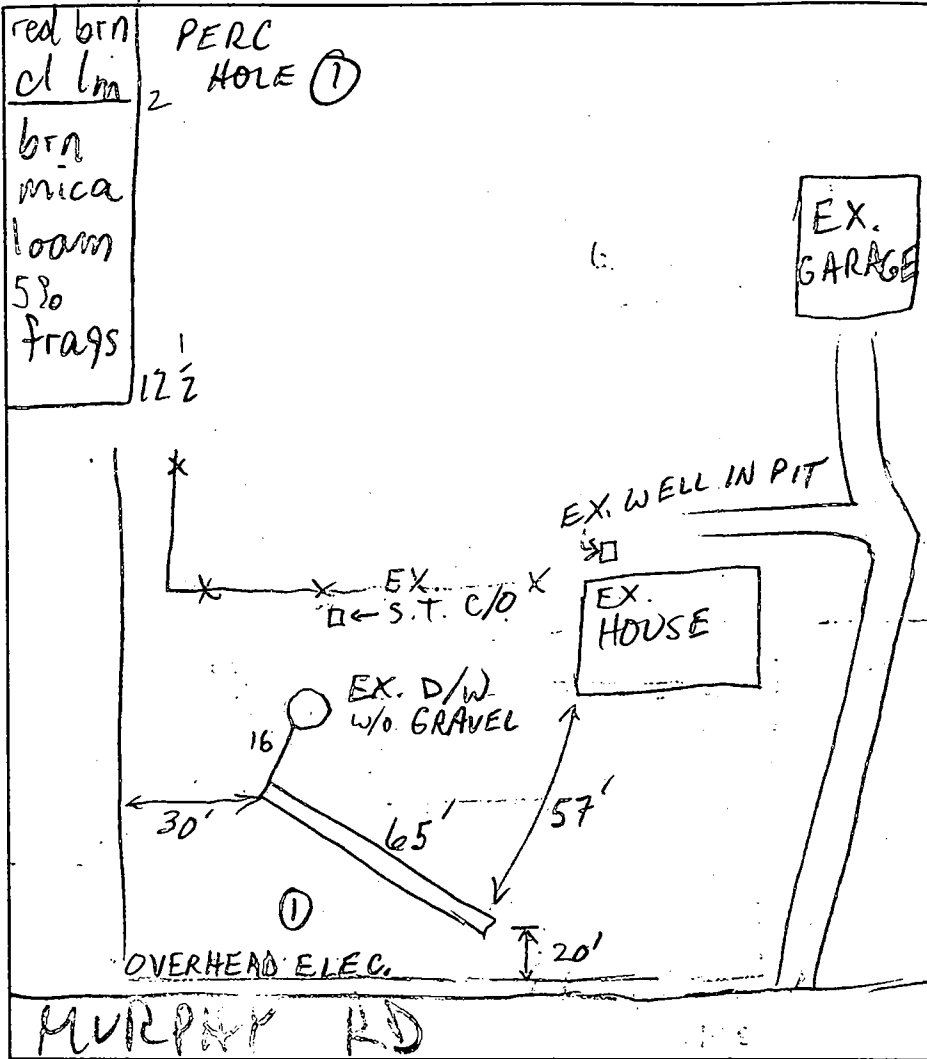 red brn
cl lm
2
PERC
HOLE ①
brn
mica
loam
5%
frags
12 1/2
EX.
GARAGE
EX. WELL IN PIT
EX.
S.T. C/O
EX.
HOUSE
EX. D/W
w/o GRAVEL
16
30'
65'
57'
①
20'
OVERHEAD ELEC.
MURPHY RD